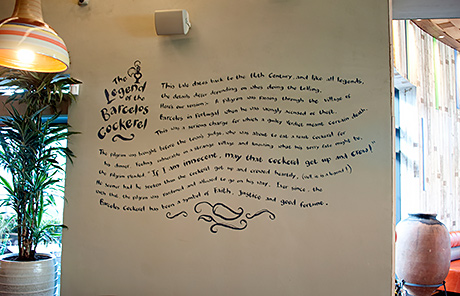 The
Legend of
the
Barcelos
Cockerel
This tale dates back to the 16th Century, and like all legends,
the details differ depending on who's doing the telling.
Here's our version: A pilgrim was passing through the village of
Barcelos in Portugal when he was wrongly accused of theft.
This was a serious charge for which a guilty verdict meant certain death.
The pilgrim was brought before the town's judge, who was about to eat a roast cockerel for
his dinner. Feeling vulnerable in a strange village and knowing what his sorry fate might be,
the pilgrim pleaded "If I am innocent, may that cockerel get up and crow!"
No sooner had he spoken than the cockerel got up and crowed heartily,
the pilgrim was acquitted and allowed to go on his way. Ever since, the
Barcelos Cockerel has been a symbol of faith, justice and good fortune.